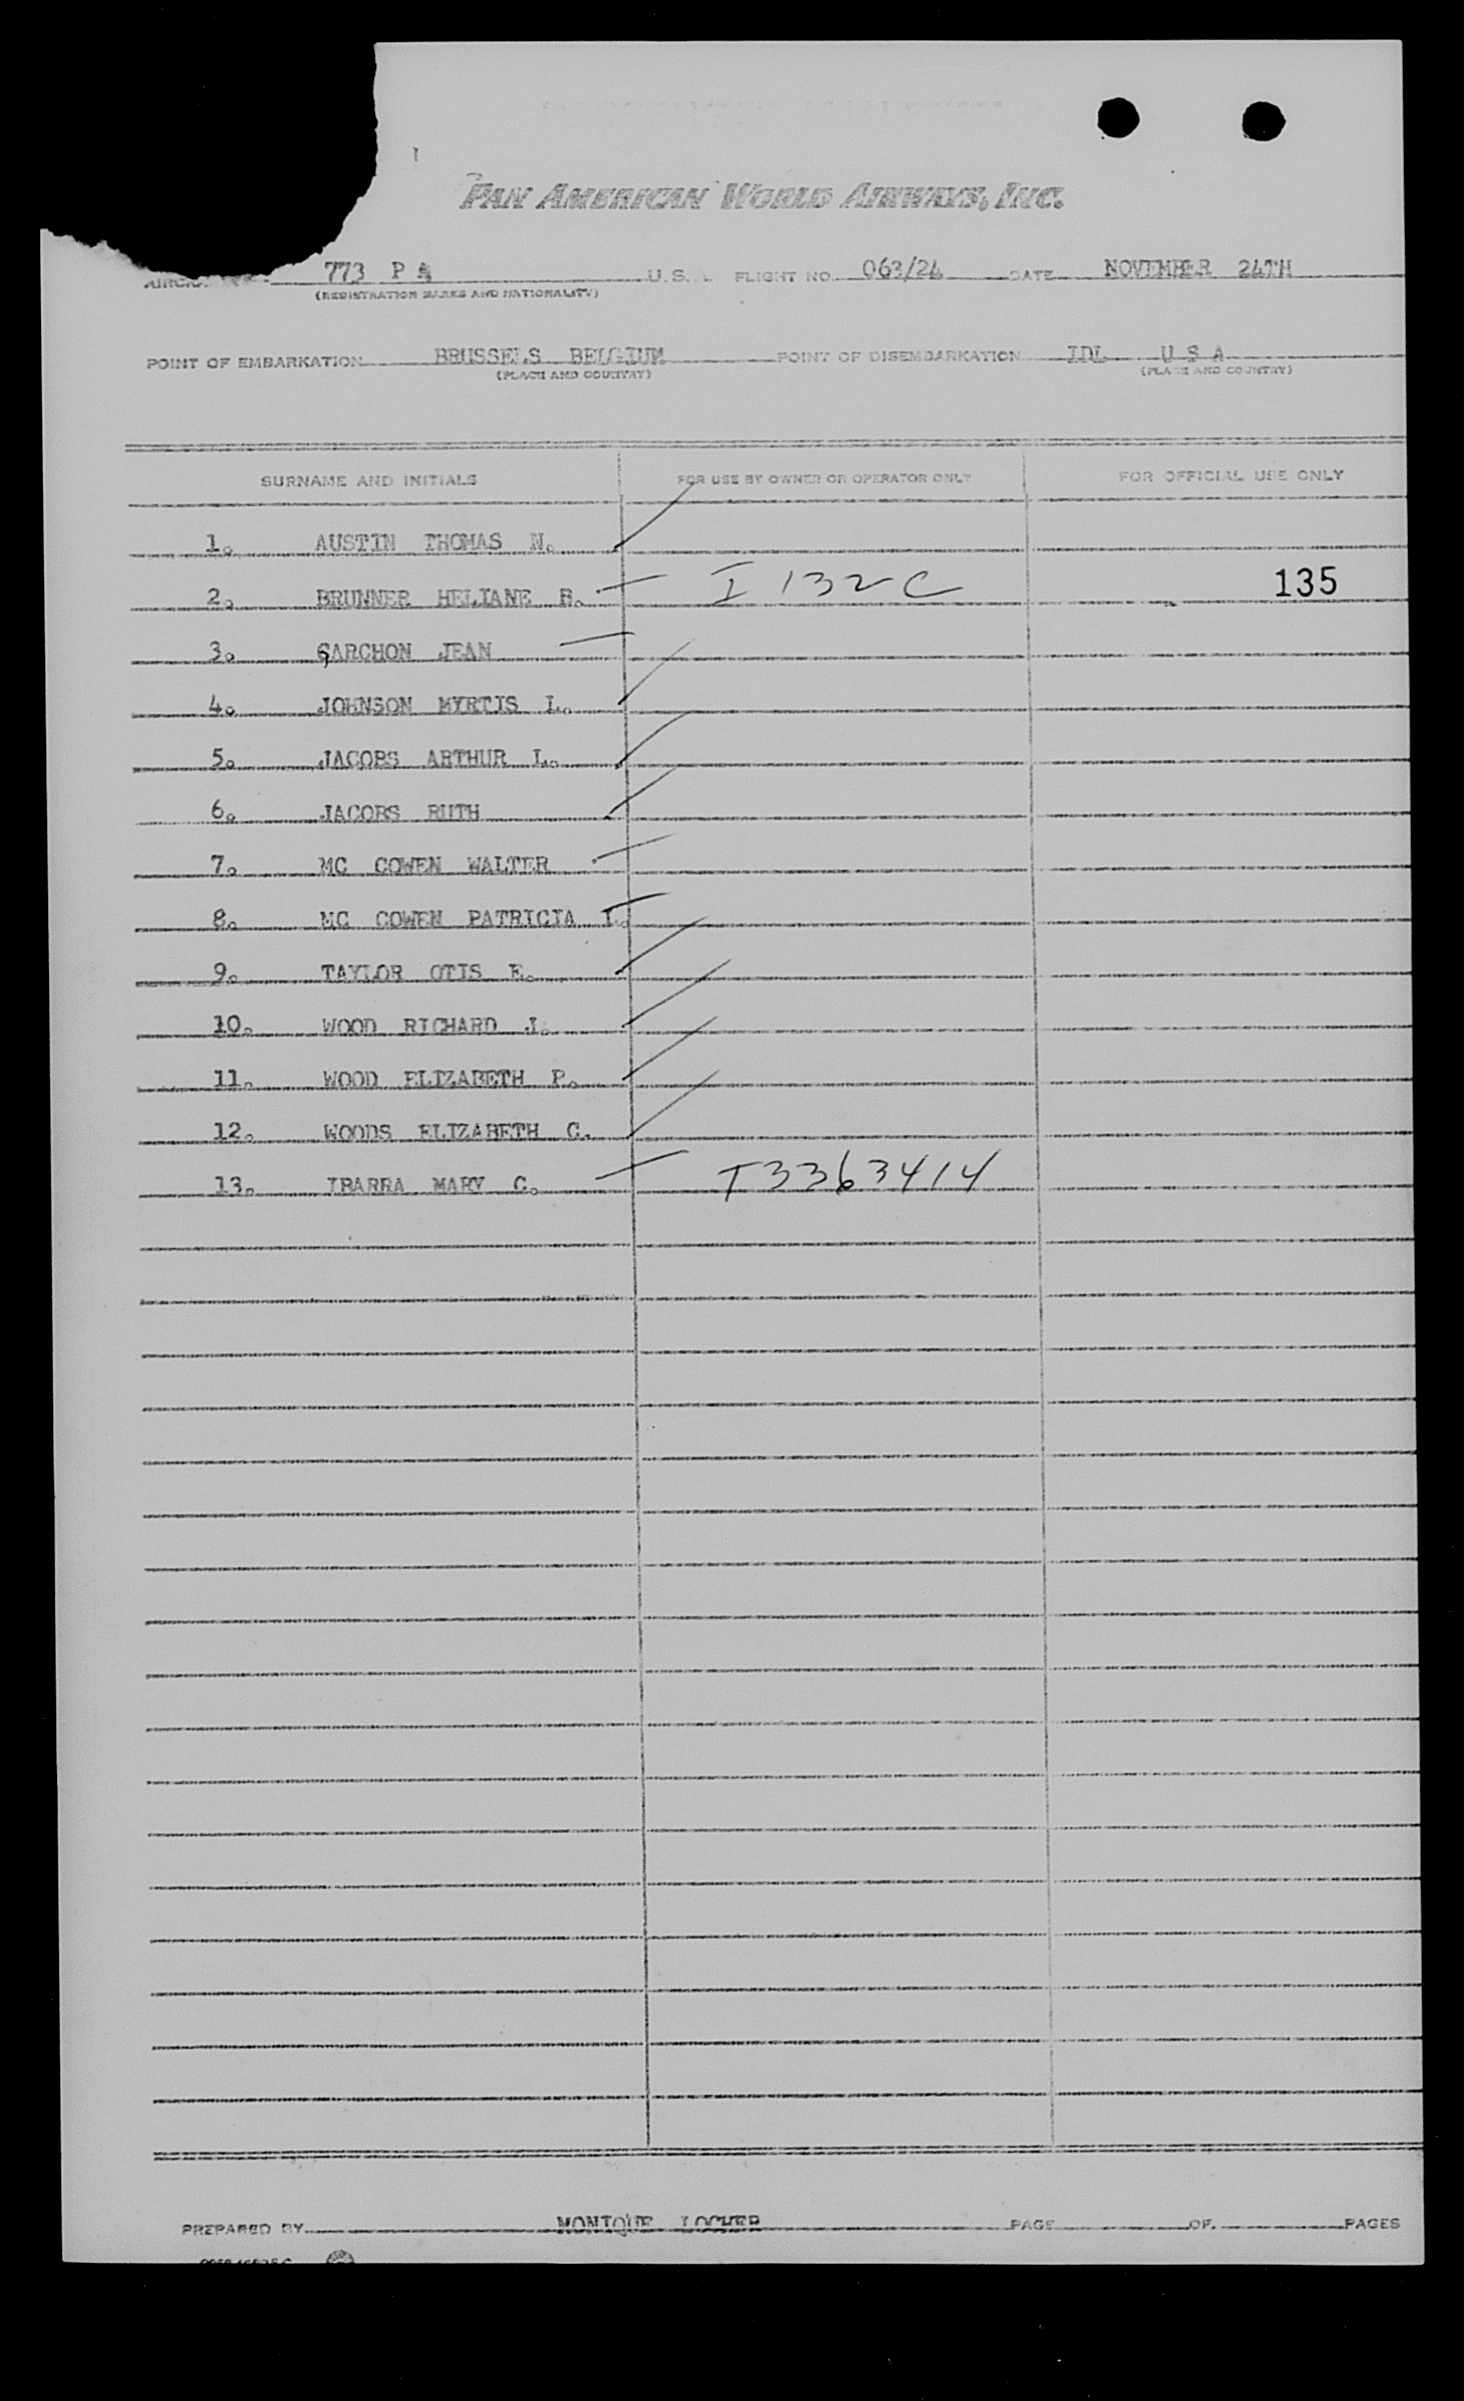 PAN AMERICAN WORLD AIRWAYS, INC.
773 P A U.S.A. FLIGHT NO. 063/24 DATE NOVEMBER 24TH
(REGISTRATION MARKS AND NATIONALITY)
POINT OF EMBARKATION BRUSSELS BELGIUM POINT OF DISEMBARKATION IDL U S A
(PLACE AND COUNTRY) (PLACE AND COUNTRY)
SURNAME AND INITIALS FOR USE BY OWNER OR OPERATOR ONLY FOR OFFICIAL USE ONLY
1. AUSTIN THOMAS N.
2. BRUNNER HELIANE B. I 132 C 135
3. GARCHON JEAN
4. JOHNSON MYRTIS L.
5. JACOBS ARTHUR L.
6. JACOBS RUTH
7. MC COWEN WALTER
8. MC COWEN PATRICIA I.
9. TAYLOR OTIS E.
10. WOOD RICHARD J.
11. WOOD ELIZABETH P.
12. WOODS ELIZABETH C.
13. IBARRA MARY C. T3363414
PREPARED BY MONIQUE LOCHER PAGE OF PAGES